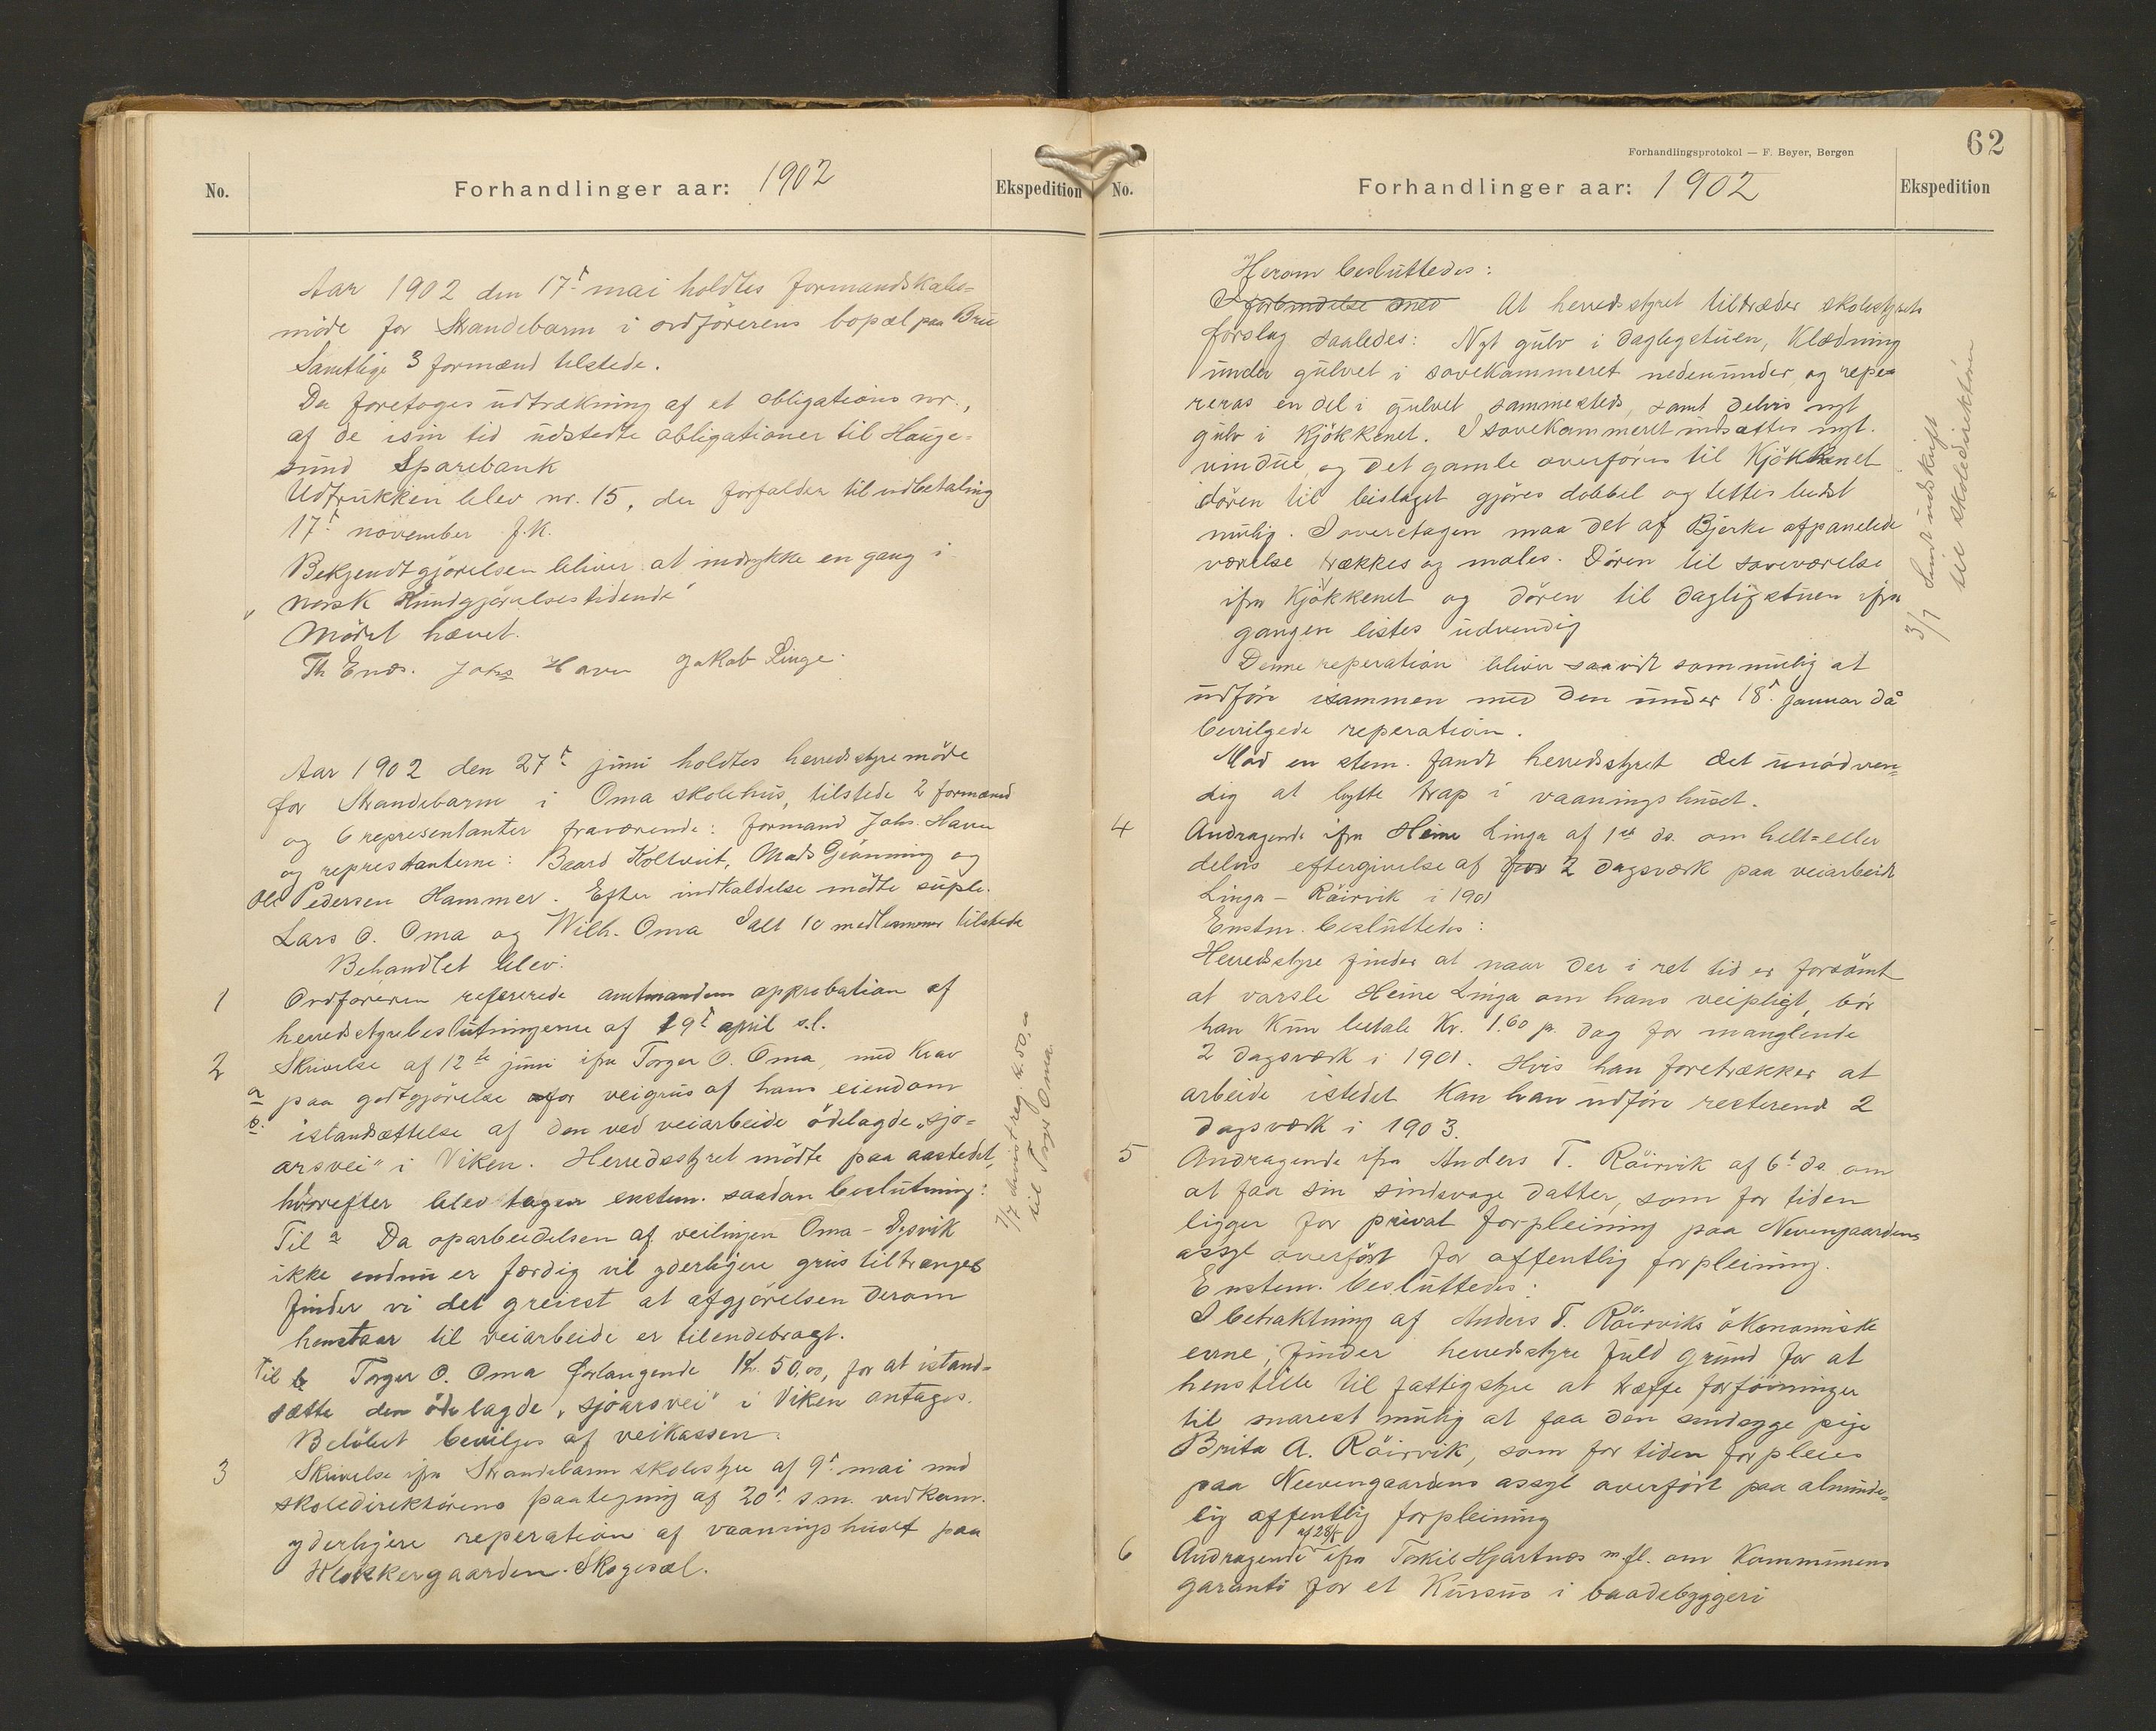 No.
Forhandlinger aar: 1902
Ekspedition
Aar 1902 den 17de mai holdtes formandskabs=
möde for Strandebarm i ordförerens bopæl paa Bru
Samtlige 3 formænd tilstede.
Der foretoges udtrækning af et obligations nr.,
af de isin tid udstedte obligationer til Hauge=
sund Sparebank
Udtrukken blev nr. 15, der forfalder til udbetaling
17de november f.k.
Bekjendtgjörelsen bliver at indrykke en gang i
"norsk Kundgjörelsestidende"
Mödet hævet.
Th Enes. Johs Havn Jakob Linge.
Aar 1902 den 27de juni holdtes herredsstyremöde
for Strandebarm i Oma skolehus, tilstede 2 formænd
og 6 representanter fraværende: formand Johs. Havn
og represtanterne: Baard Koltveit, Mads Grönning og
Ole Pedersen Hammer. Efter indkaldelse mödte suple.
Lars O. Oma og Wilh. Oma Ialt 10 medlemmer tilstede
Behandlet blev:
1 Ordföreren refererede amtmandens approbation af
herredsstyrebeslutningerne af 19de april s.l.
2 Skrivelse af 12te juni ifra Torger O. Oma, med krav
a paa godtgjörelse for veigrus af hans eiendom
b. istandsættelse af den ved veiarbeide ödelagde "sjo=
arsvei" i Viken. Herredsstyret mödte paa aastedet,
hvorefter blev tagen enstem. saadan beslutning:
Til a Da oparbeidelsen af veilinjen Oma - Dysvik
ikke endnu er færdig vil yderligere grus tiltrænges
finder vi det greiest at afgjörelsen derom
henstaar til veiarbeide er tilendebragt.
Til b Torger O. Oma forlangende Kr. 50,00, for at istand=
sætte den ödelagde "sjoarsvei" i Viken antages.
Belöbet bevilges af veikassen.
7/7 anvist reg. k. 50,00
til Torger Oma.
3 Skrivelse ifra Strandebarm skolestyre af 9de mai med
skoledirektörens paategning af 20de s.m. vedkom.
yderligere reperation af vaaningshuset paa
Klokkergaarden Skogesæl.
62
Forhandlingsprotokol — F. Beyer, Bergen
No.
Forhandlinger aar: 1902
Ekspedition
Herom besluttedes:
I forbindelse med At herredsstyret tiltræder skolestyrets
forslag saaledes: Nyt gulv i dagligstuen, Klædning
under gulvet i sovekammeret nedenunder, og repe=
reras en del i gulvet sammesteds, samt delvis nyt
gulv i Kjökkenet. I sovekammeret indsættes nyt.
vindue, og det gamle overföres til Kjökkenet
dören til bislaget gjöres dobbel og tettes bedst
mulig. I overetagen maa det af Bjerke afpanelede
værelse trækkes og males. Dören til soveværelse
ifra Kjökkenet og dören til dagligstuen ifra
gangen listes udvendig
Denne reperation bliver saavidt sommulig at
udföre isammen med den under 18de januar då
bevilgede reperation.
Mod en stem. fandt herredsstyret det unödven=
dig at bytte trap i vaaningshuset.
3/7 Sendt udskrift
til skoledirektören
4 Andragende ifra Heine Linga af 1ste ds. om helt=eller
delvis eftergivelse af for 2 dagsværk paa veiarbeidet
Linga - Röirvik i 1901
Enstm. besluttedes:
Herredsstyre finder at naar der i ret tid er forsömt
at varsle Heine Linga om hans veipligt, bör
han kun betale Kr. 1.60 p. dag for manglende
2 dagsværk i 1901. Hvis han foretrækker at
arbeide istedet kan han udföre resterende 2
dagsværk i 1903.
5 Andragende ifra Anders T. Röirvik af 6te ds. om
at faa sin sindsvage datter, som for tiden
ligger for privat forpleining paa Nevengaardens
assyl overfört for offentlig forpleining.
Enstem. besluttedes:
I betraktning af Anders T. Röirviks ökonomiske
evne, finder herredsstyre fuld grund for at
henstille til fattigstyre at træffe forföininger
til snarest mulig at faa den sindsyge pige
Brita A. Röirvik, som for tiden forpleies
paa Neevengaardens assyl overfört paa alminde=
lig offentlig forpleining
6 Andragende af 28/5 ifra Torkil Hjartnæs m.fl. om Kommunens
garanti for et Kursus i baadebyggeri